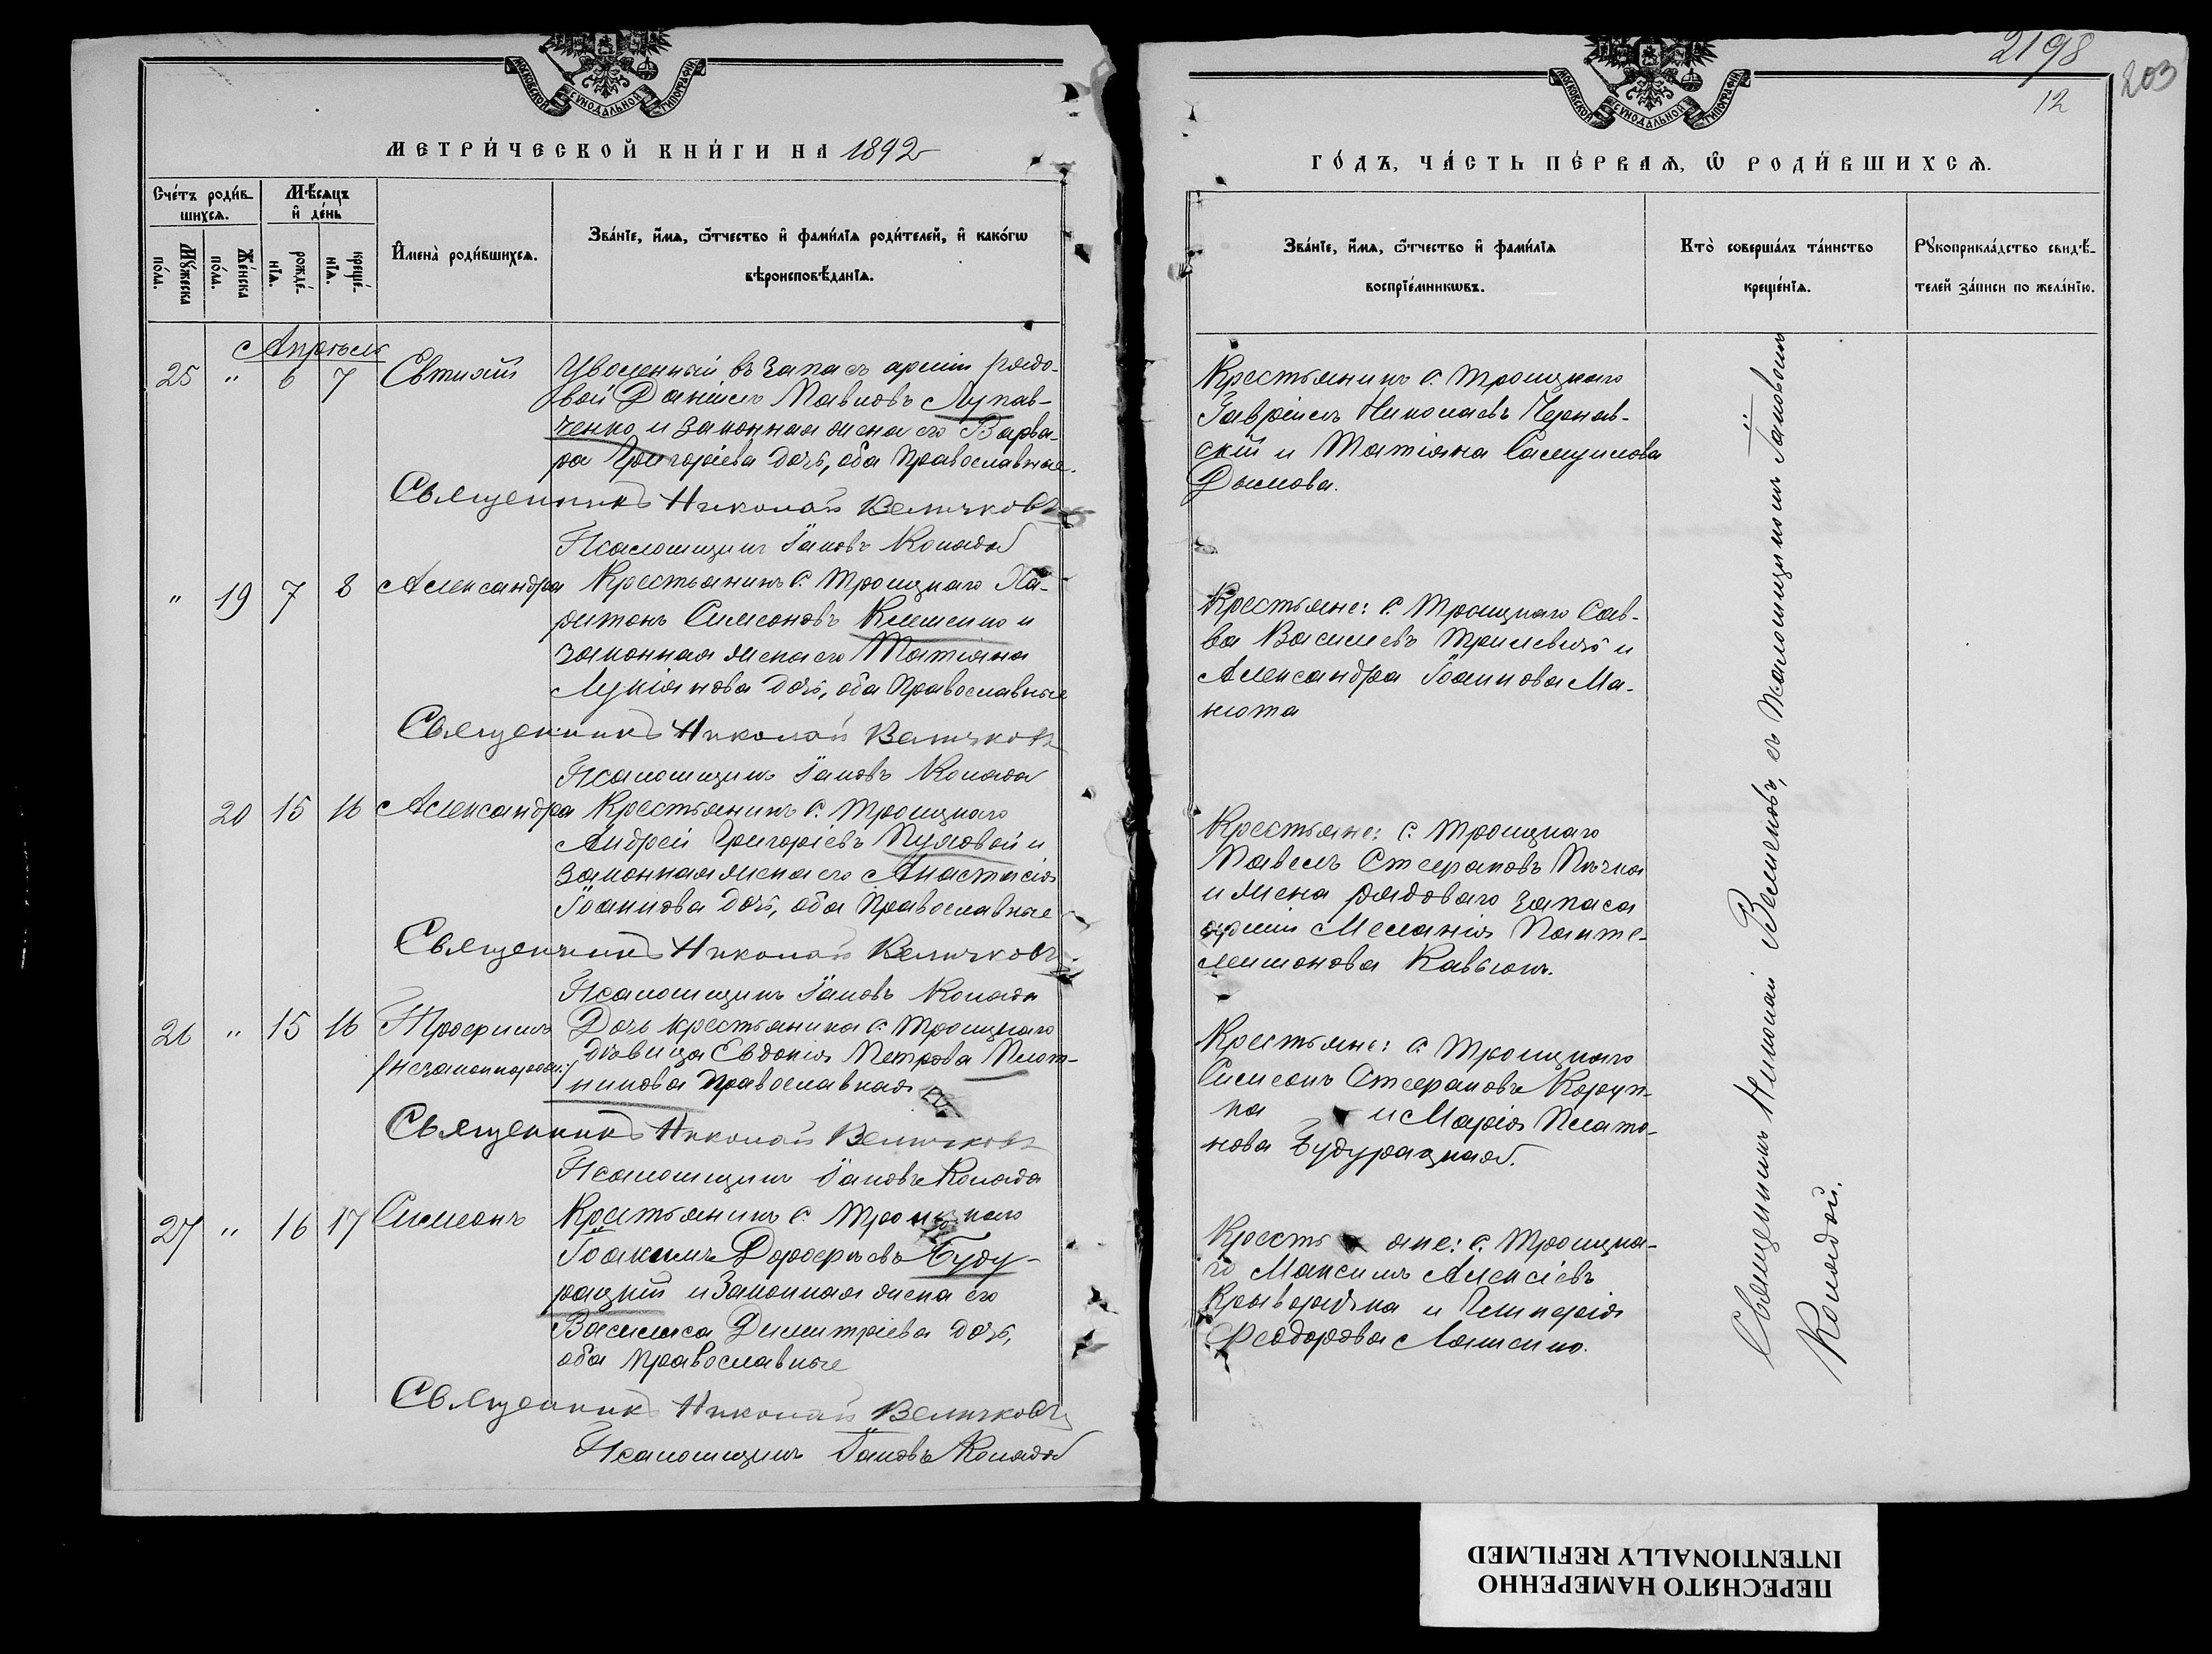 МОСКОВСКОЙ СУНОДАЛЬНОЙ ТИПОГРАФІИ
МЕТРИ́ЧЕСКОЙ КНИ́ГИ НА 1892
Сче́тъ роди́в-
шихсѧ.
Мѣ́сѧцъ
и҆ де́нь
Мꙋ́жеска
по́ла.
Же́нска
по́ла.
рожде́-
нїѧ.
креще́-
нїѧ.
И҆мена̀ роди́вшихсѧ.
Зва́нїе, и҆́мѧ, ѻ҆́тчество и҆ фами́лїѧ роди́телей, и҆ како́гѡ
вѣроисповѣ́данїѧ.
Апрѣль
25 " 6 7 Евтихій Уволенный въ запасъ арміи рядо-
вой Даніилъ Павловъ Лупав-
ченко и законная жена его Варва-
ра Григоріева дочь, оба Православные.
Священникъ Николай Величковъ
Псаломщикъ Іаковъ Коляда
" 19 7 8 Александра Крестьянинъ с. Троицкаго Ха-
ритонъ Симеоновъ Клименко и
законная жена его Татіана
Лукіанова дочь, оба Православные
Священникъ Николай Величковъ
Псаломщикъ Іаковъ Коляда
20 15 16 Александра Крестьянинъ с. Троицкаго
Андрей Григоріевъ Пуловой и
законная жена его Анастасія
Іоаннова дочь, оба Православные
Священникъ Николай Величковъ
Псаломщикъ Іаковъ Коляда
26 " 15 16 Трофимъ Дочь крестьянина с. Троицкаго
/незаконнорожд:/ дѣвица Евдокія Петрова Плот-
никова Православная
Священникъ Николай Величковъ
Псаломщикъ Іаковъ Коляда
27 " 16 17 Симеонъ Крестьянинъ с. Троицкаго
Іоакимъ Дорофеевъ Буду-
рацкій и законная жена его
Василиса Димитріева дочь,
оба православные
Священникъ Николай Величковъ
Псаломщикъ Іаковъ Коляда
2198
203
12
МОСКОВСКОЙ СУНОДАЛЬНОЙ ТИПОГРАФІИ
ГО́ДЪ, ЧА́СТЬ ПЕ́РВАѦ, Ѽ РОДИ́ВШИХСѦ.
Зва́нїе, и҆́мѧ, ѻ҆́тчество и҆ фами́лїѧ
воспрїе́мникѡвъ.
Кто̀ соверша́лъ та́инство
креще́нїѧ.
Рꙋкоприкла́дство свидѣ́-
телей за́писи по жела́нїю.
Крестьянинъ с. Троицкаго
Гавріилъ Николаевъ Чернав-
скій и Татіана Самуилова
Дымова.
Крестьяне: с. Троицкаго Сав-
ва Василіевъ Трилевичъ и
Александра Іоаннова Ма-
нюта
Крестьяне: с. Троицкаго
Павелъ Стефановъ Пычка
и жена рядоваго запаса
арміи Меланія Панте-
леимонова Кавьюкъ.
Крестьяне: с. Троицкаго
Симеонъ Стефановъ Коруп-
ка и Марія Плато-
нова Будурацкая.
Крестьяне: с. Троицка-
го Максимъ Алексіевъ
Криворучка и Гликерія
Феодорова Лашенко.
Священникъ Николай Величковъ, съ псаломщикомъ Іаковомъ
Колядой.
ПЕРЕСНЯТО НАМЕРЕННО
INTENTIONALLY REFILMED